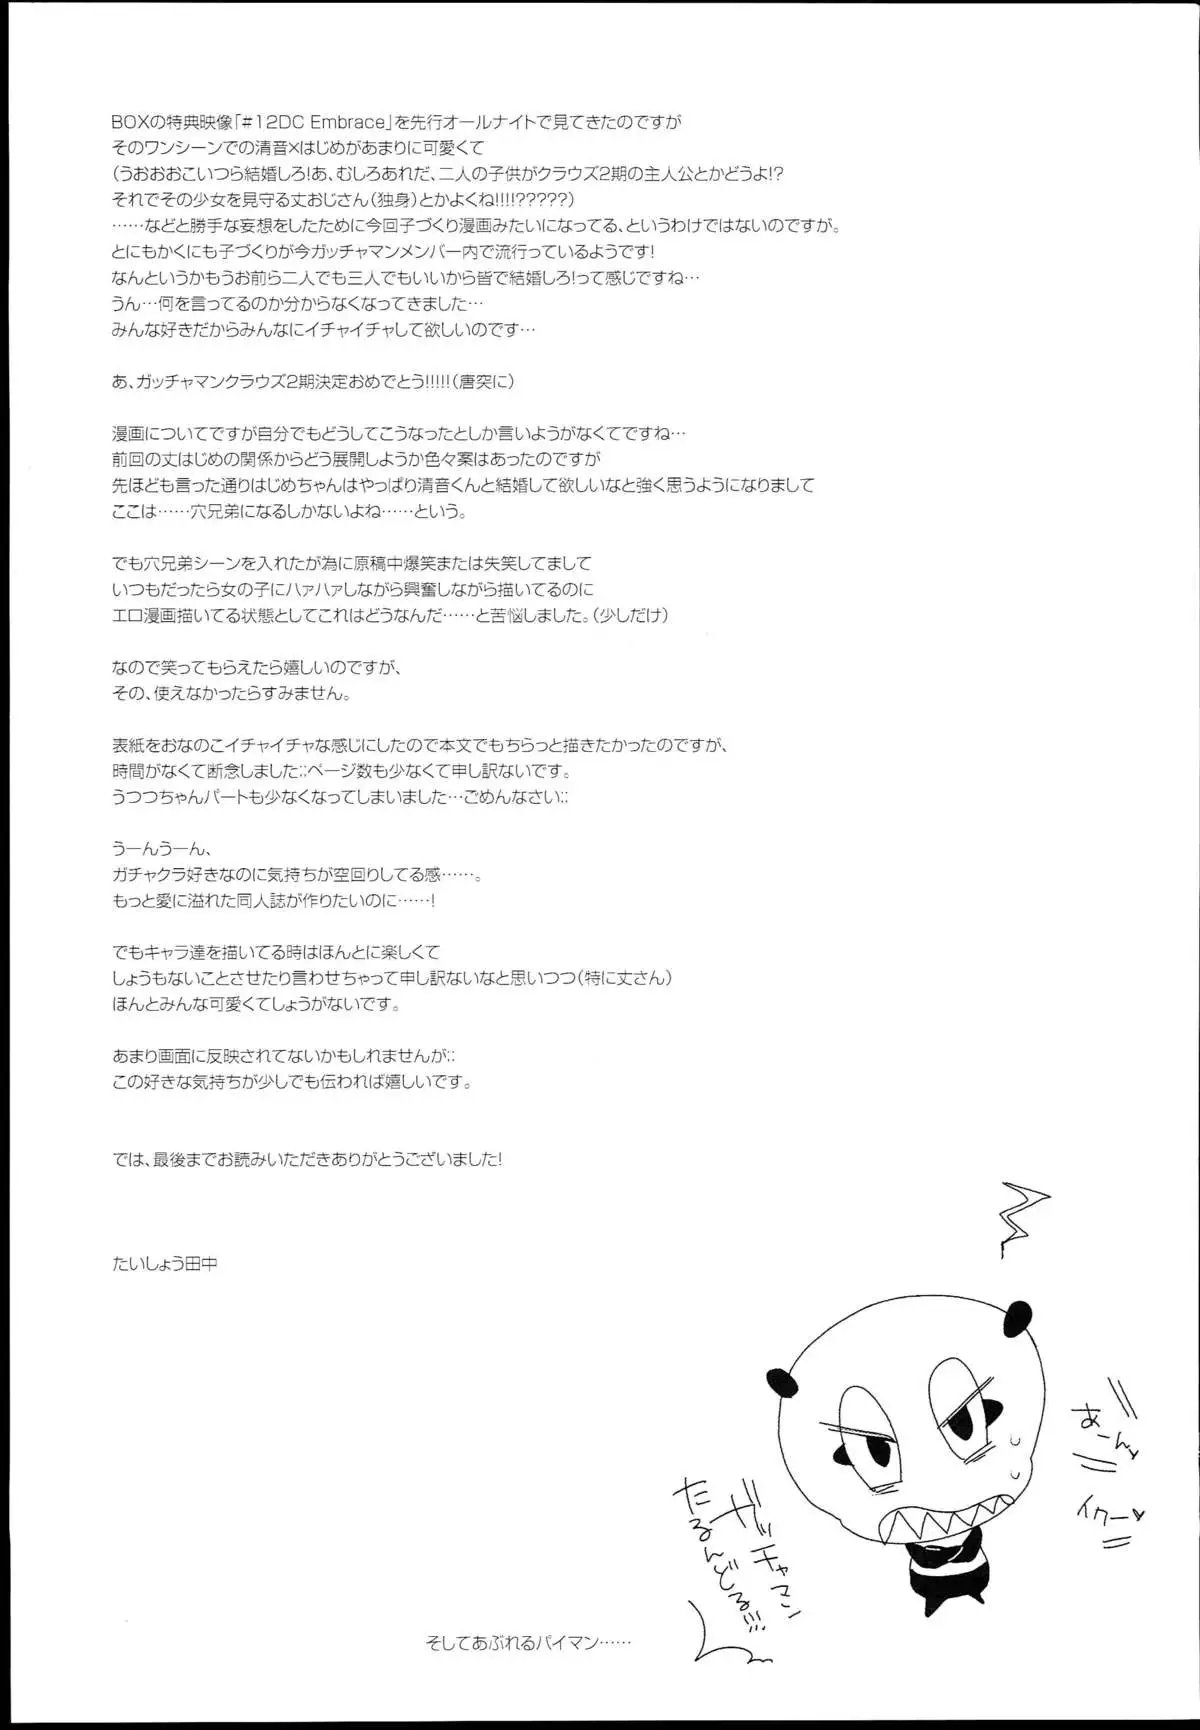 BOXの特典映像「#12DC Embrace」を先行オールナイトで見てきたのですが
そのワンシーンでの清音×はじめがあまりに可愛くて
(うおおおこいつら結婚しろ!あ、むしろあれだ、二人の子供がクラウズ2期の主人公とかどうよ!?
それでその少女を見守る丈おじさん(独身)とかよくね!!!!?????)
……などと勝手な妄想をしたために今回子づくり漫画みたいになってる、というわけではないのですが。
とにもかくにも子づくりが今ガッチャマンメンバー内で流行っているようです!
なんというかもうお前ら二人でも三人でもいいから皆で結婚しろ!って感じですね…
うん…何を言ってるのか分からなくなってきました…
みんな好きだからみんなにイチャイチャして欲しいのです…
あ、ガッチャマンクラウズ2期決定おめでとう!!!!!(唐突に)
漫画についてですが自分でもどうしてこうなったとしか言いようがなくてですね…
前回の丈はじめの関係からどう展開しようか色々案はあったのですが
先ほども言った通りはじめちゃんはやっぱり清音くんと結婚して欲しいなと強く思うようになりまして
ここは……穴兄弟になるしかないよね……という。
でも穴兄弟シーンを入れたが為に原稿中爆笑または失笑してまして
いつもだったら女の子にハァハァしながら興奮しながら描いてるのに
エロ漫画描いてる状態としてこれはどうなんだ……と苦悩しました。(少しだけ)
なので笑ってもらえたら嬉しいのですが、
その、使えなかったらすみません。
表紙をおなのこイチャイチャな感じにしたので本文でもちらっと描きたかったのですが、
時間がなくて断念しました;;ページ数も少なくて申し訳ないです。
うつつちゃんパートも少なくなってしまいました…ごめんなさい;;
うーんうーん、
ガチャクラ好きなのに気持ちが空回りしてる感……。
もっと愛に溢れた同人誌が作りたいのに……!
でもキャラ達を描いてる時はほんとに楽しくて
しょうもないことさせたり言わせちゃって申し訳ないなと思いつつ(特に丈さん)
ほんとみんな可愛くてしょうがないです。
あまり画面に反映されてないかもしれませんが;;
この好きな気持ちが少しでも伝われば嬉しいです。
では、最後までお読みいただきありがとうございました!
たいしょう田中
あーん♥
イクー♥
ガッチャマン
たるんどる!!!
そしてあぶれるパイマン……